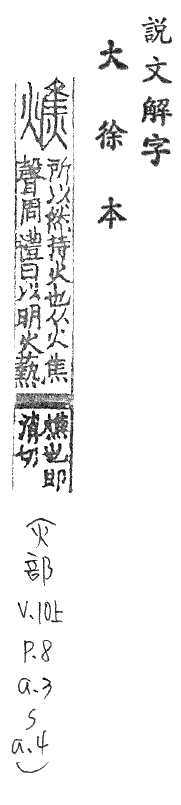 説文解字
大徐本
燋
所以然持火也从火焦
聲周禮曰以明火爇
燋也即
消切
(火部
V.10上
P.8
a.3
~
a.4)